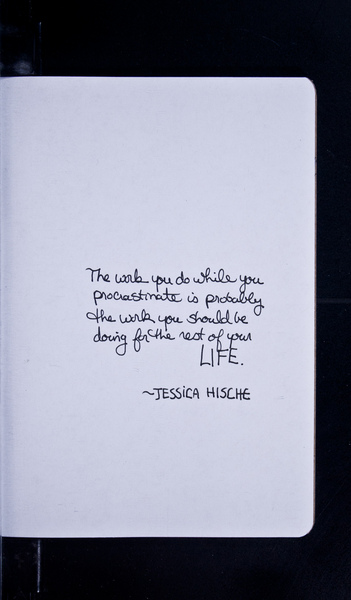 The work you do while you
procrastinate is probably
the work you should be
doing for the rest of your
LIFE.
~JESSICA HISCHE